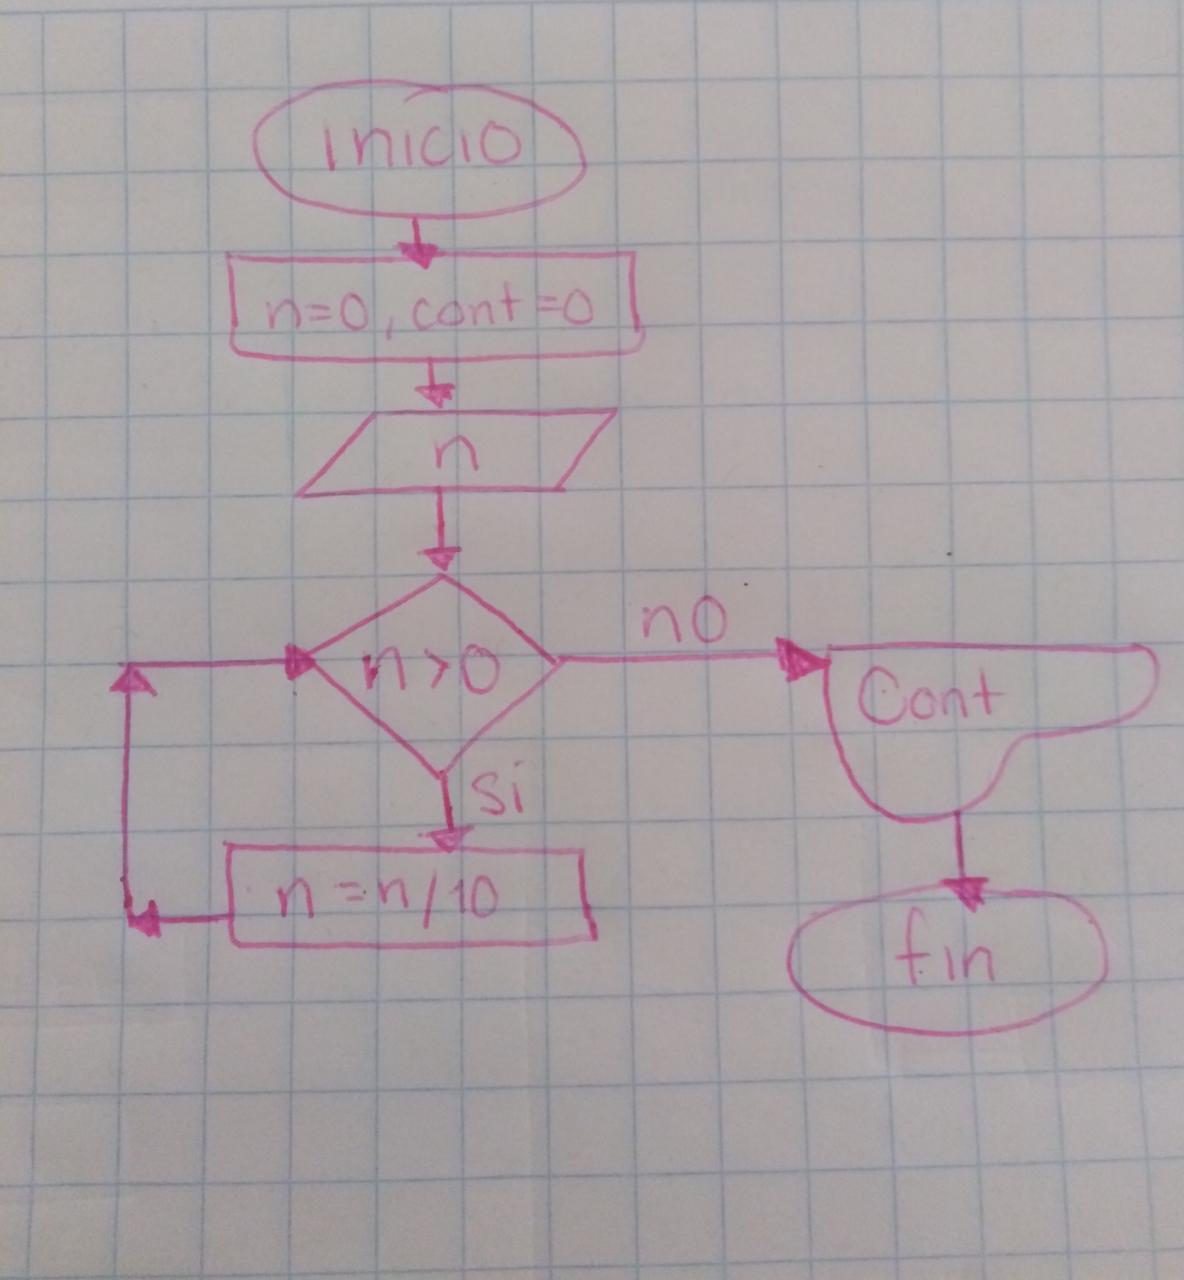 inicio
n=0, cont=0
n
n>0
no
Cont
si
n=n/10
fin